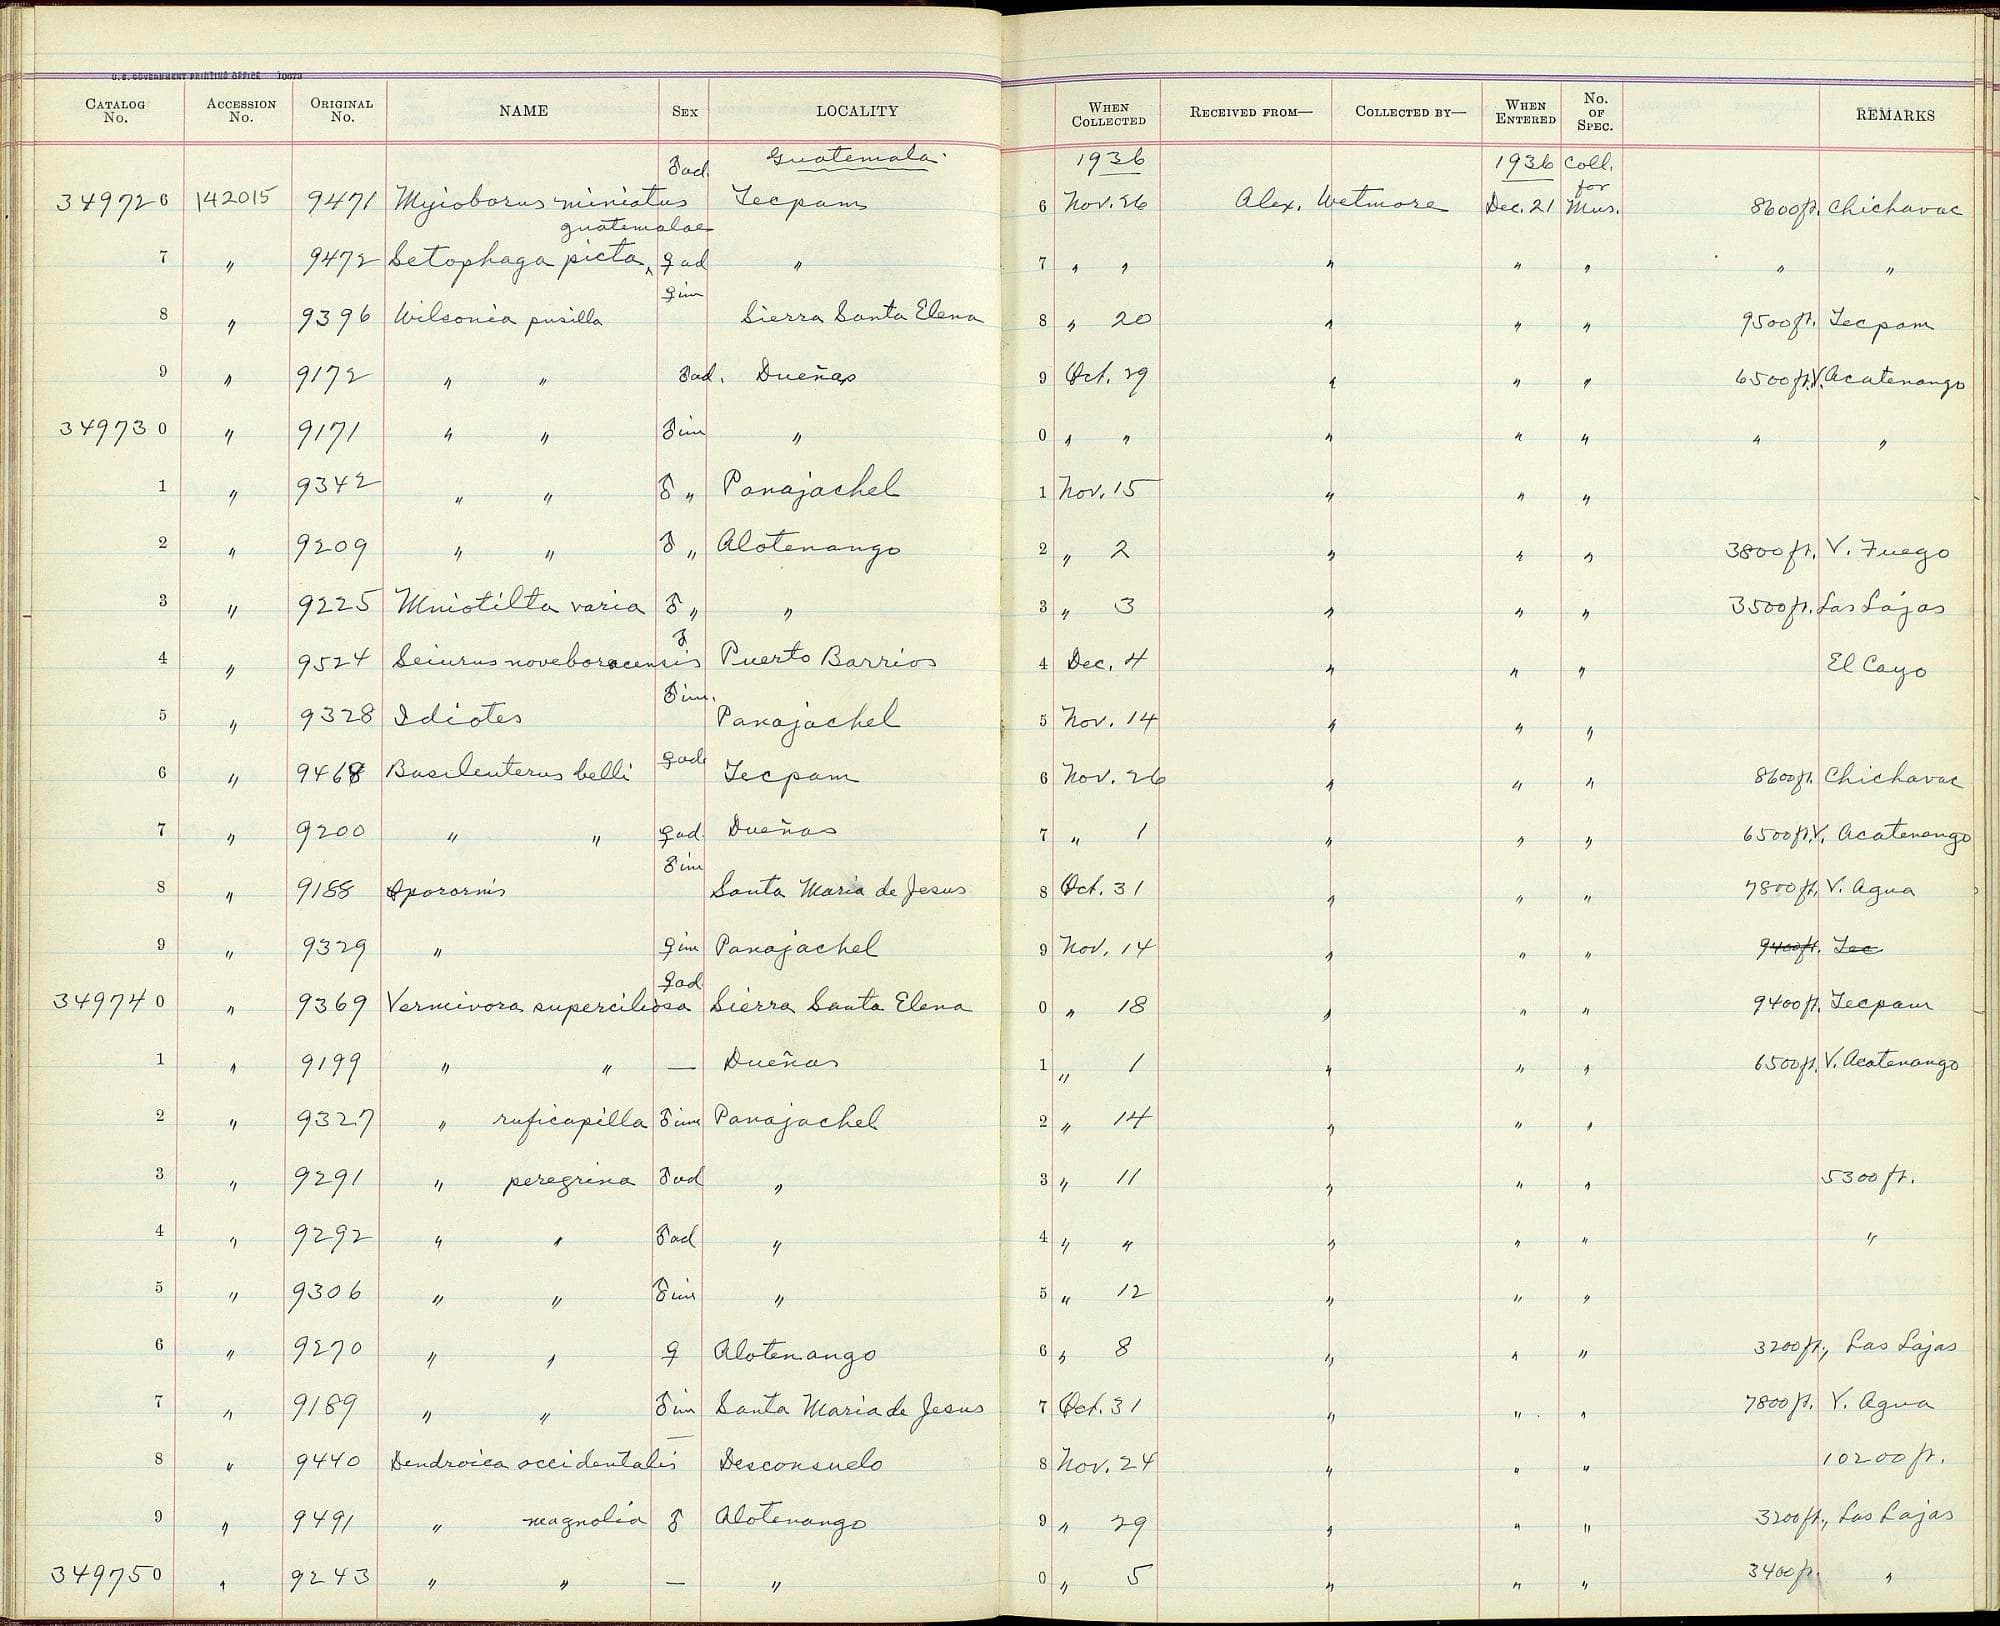 U.S. GOVERNMENT PRINTING OFFICE 10673
CATALOG No. ACCESSION No. ORIGINAL No. NAME SEX LOCALITY WHEN COLLECTED RECEIVED FROM— COLLECTED BY— WHEN ENTERED No. OF SPEC. REMARKS
Guatemala 1936 1936 Coll. for Mus.
349726 142015 9471 Myioborus miniatus ♂ad. Tecpam 6 Nov. 26 Alex. Wetmore Dec. 21 8600 ft. Chichavac
guatemalae
7 " 9472 Setophaga picta ‸ ♀ad " 7 " " " " " " "
8 " 9396 Wilsonia pusilla ♀im Sierra Santa Elena 8 " 20 " " " 9500 ft. Tecpam
9 " 9172 " " ♂ad. Dueñas 9 Oct. 29 " " " 6500 ft. V. Acatenango
349730 " 9171 " " ♂im " 0 " " " " " " "
1 " 9342 " " ♂ " Panajachel 1 Nov. 15 " " "
2 " 9209 " " ♂ " Alotenango 2 " 2 " " " 3800 ft. V. Fuego
3 " 9225 Mniotilta varia ♂ " " 3 " 3 " " " 3500 ft. Las Lájas
4 " 9524 Seiurus noveboracensis ♂ Puerto Barrios 4 Dec. 4 " " " El Cayo
5 " 9328 Idiotes ♂im. Panajachel 5 Nov. 14 " " "
6 " 9468 Basileuterus belli ♀ad Tecpam 6 Nov. 26 " " " 8600 ft. Chichavac
7 " 9200 " " ♀ad. Dueñas 7 " 1 " " " 6500 ft. V. Acatenango
8 " 9188 Oporornis ♂im Santa Maria de Jesus 8 Oct. 31 " " " 7800 ft. V. Agua
9 " 9329 " ♀im Panajachel 9 Nov. 14 " " " 9400 ft. Tec
349740 " 9369 Vermivora superciliosa ♀ad Sierra Santa Elena 0 " 18 " " " 9400 ft. Tecpam
1 " 9199 " " — Dueñas 1 " 1 " " " 6500 ft. V. Acatenango
2 " 9327 " ruficapilla ♂im Panajachel 2 " 14 " " "
3 " 9291 " peregrina ♂ad " 3 " 11 " " " 5300 ft.
4 " 9292 " " ♂ad " 4 " " " " " "
5 " 9306 " " ♂im " 5 " 12 " " "
6 " 9270 " " ♀ Alotenango 6 " 8 " " " 3200 ft., Las Lajas
7 " 9189 " " ♂im Santa Maria de Jesus 7 Oct. 31 " " " 7800 ft. V. Agua
8 " 9440 Dendroica occidentalis — Desconsuelo 8 Nov. 24 " " " 10200 ft.
9 " 9491 " magnolia ♂ Alotenango 9 " 29 " " " 3200 ft., Las Lajas
349750 " 9243 " " — " 0 " 5 " " " 3400 ft. "